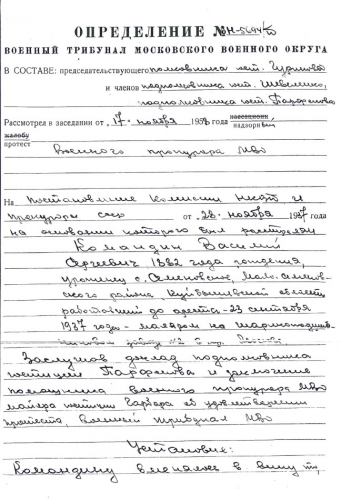 ОПРЕДЕЛЕНИЕ № н-5694/о
ВОЕННЫЙ ТРИБУНАЛ МОСКОВСКОГО ВОЕННОГО ОКРУГА
В СОСТАВЕ: председательствующего полковника юст.
и членов подполковника юст. Шевченко,
подполковника юст. Парфенова
Рассмотрел в заседании от 17 ноября 1958 года кассационн
надзорн
жалобу
протест
Военного прокурора МВО
На постановление Комиссии НКВД и
прокурора СССР от 28 ноября 1937 года
на основании которого был расстрелян
Командин Василий
Сергеевич 1882 года рождения
уроженец с. Семеновское,
района, Куйбышевской области
работавший до ареста - 23 сентября
1937 года - маляром на
№2
Заслушав доклад подполковника
юстиции Парфенова и заключение
помощника военного прокурора МВО
майора юстиции об удовлетворении
протеста, Военный трибунал МВО
Установил:
Командину вменялось в вину то,